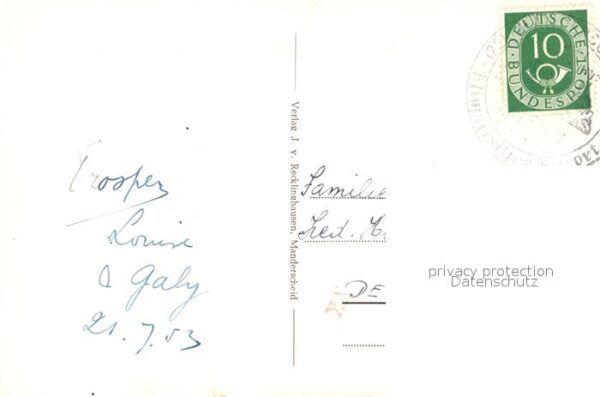 Prosper
Louise
& Gaby
21.7.53
Verlag J. v. Recklinghausen, Manderscheid
DEUTSCHE
BUNDESPOST
10
Familie
DE
privacy protection
Datenschutz